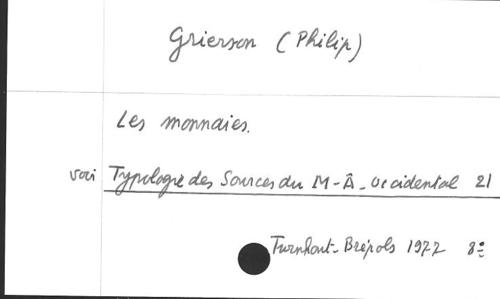 Grierson (Philip)
Les monnaies.
voir Typologie des Sources du M-Â-Occidental 21
Turnhout-Brépols 1977 8º